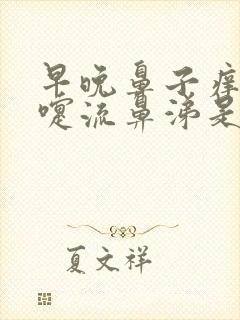 早晚鼻子痒
嚏流鼻涕是
夏文祥